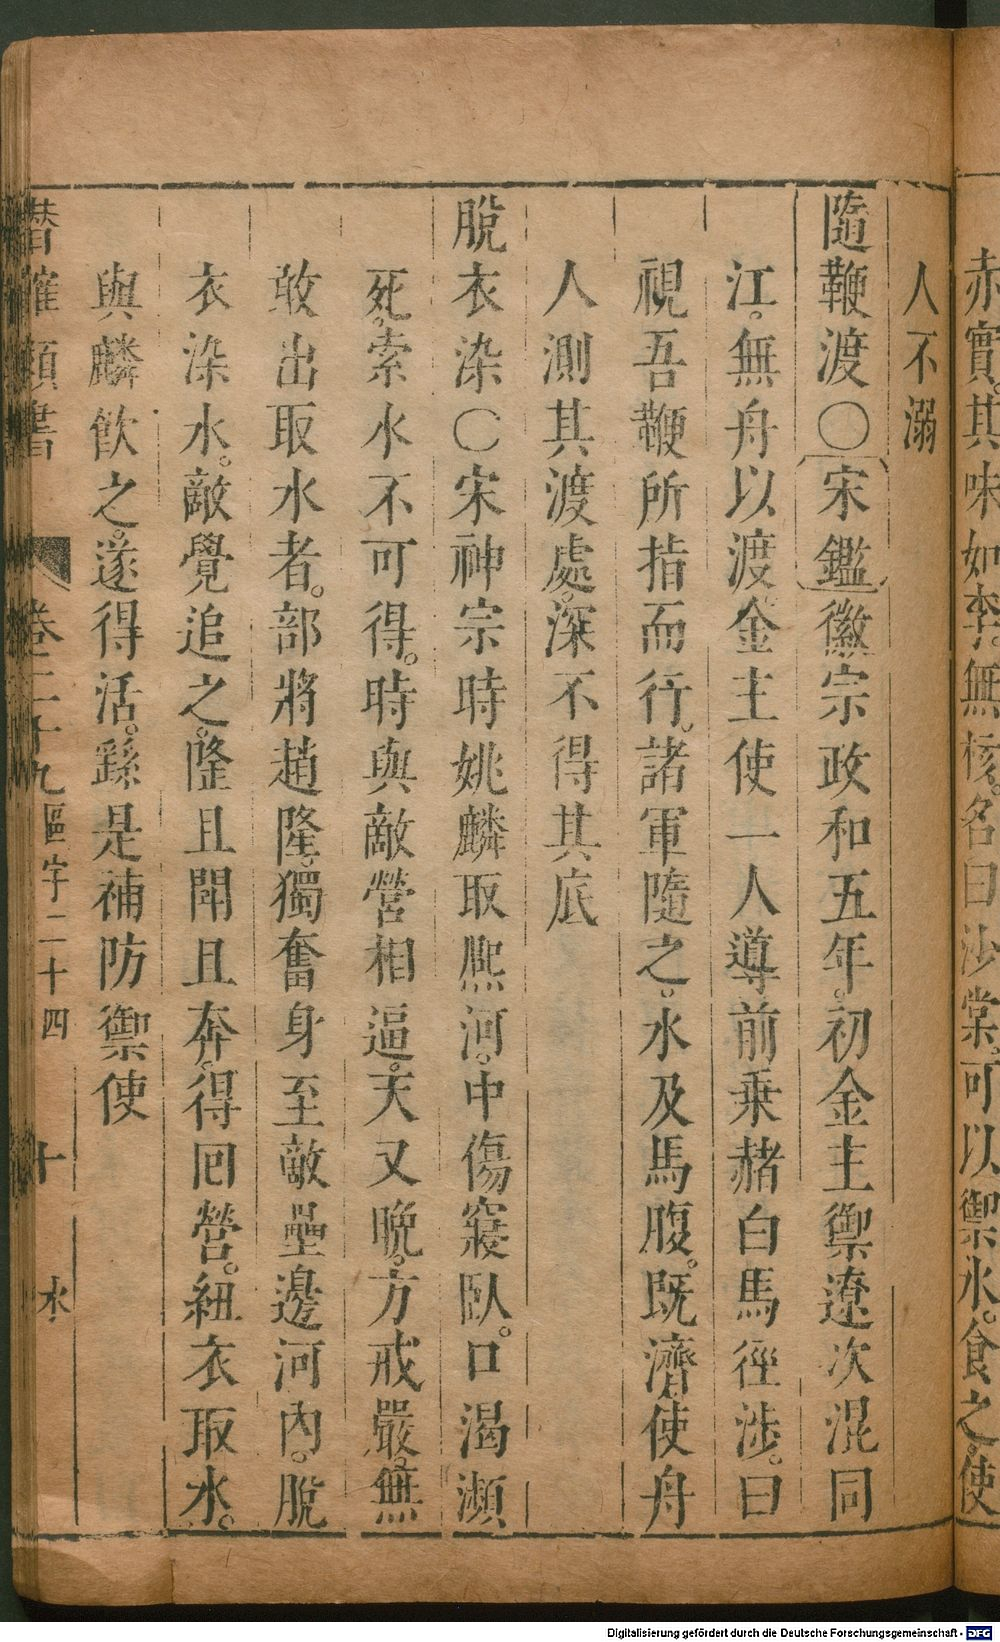 赤實其味如李。無核。名曰沙棠。可以禦水。食之使
人不溺
隨鞭渡〇宋鑑徽宗政和五年。初金主禦遼次混同
江。無舟以渡金主使一人導前乘赭白馬徑涉。曰
視吾鞭所指而行。諸軍隨之。水及馬腹。既濟。使舟
人測其渡處。深不得其底
脫衣染〇宋神宗時姚麟取熈河。中傷寢臥。口渴瀕
死。索水不可得。時與敵營相逼。天又晚。方戒嚴。無
敢出取水者。部將趙隆。獨奮身至敵壘邊河內。脫
衣染水。敵覺追之。隆且鬬且奔。得回營。紐衣取水。
與麟飲之。遂得活。繇是補防禦使
潛確類書 卷二十九區宇二十四 十 水
Digitalisierung gefördert durch die Deutsche Forschungsgemeinschaft - DFG